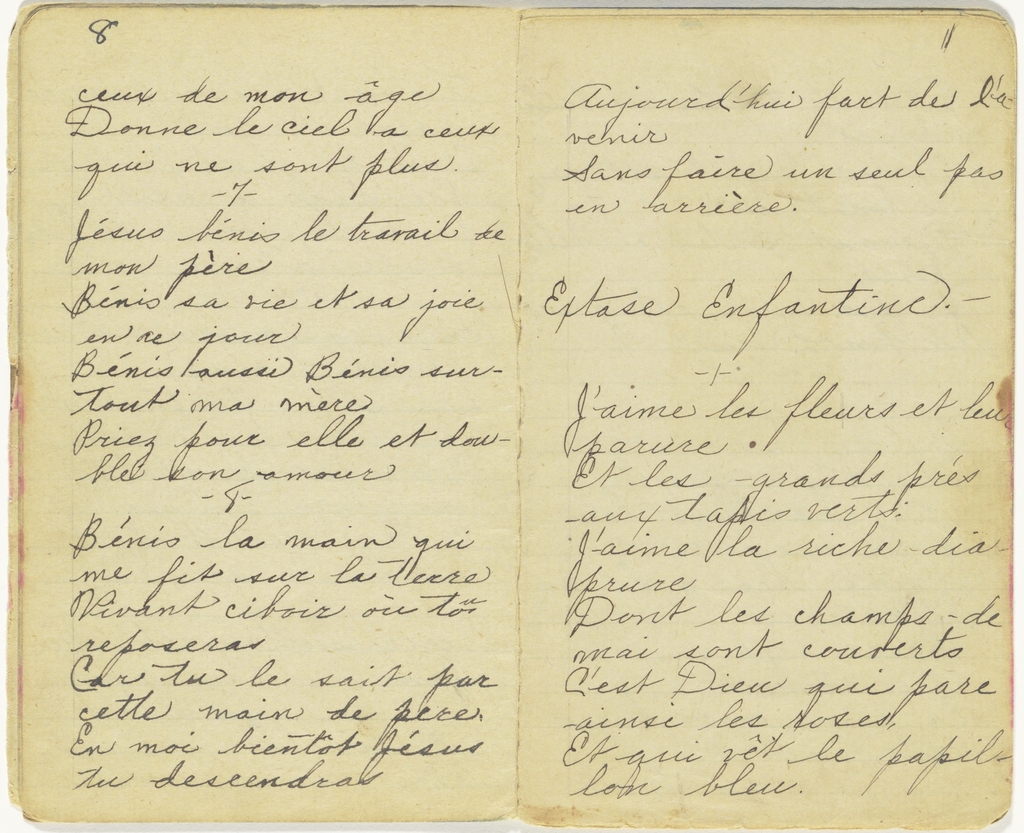 8
ceux de mon âge
Donne le ciel a ceux
qui ne sont plus.
-7-
Jésus bénis le travail de
mon père
Bénis sa vie et sa joie
en ce jour
Bénis aussi Bénis sur-
tout ma mère
Priez pour elle et dou-
ble son amour
-8-
Bénis la main qui
me fit sur la terre
Vivant ciboir où tu
reposeras
Car tu le sait par
cette main de pere.
En moi bientôt Jésus
tu descendras
11
Aujourd'hui fort de l'a
venir
Sans faire un seul pas
en arrière.
Extase Enfantine.-
-1-
J'aime les fleurs et leur
parure.
Et les grands prés
aux tapis verts.
J'aime la riche dia-
prure
Dont les champs de
mai sont couverts
C'est Dieu qui pare
ainsi les roses,
Et qui vêt le papil-
lon bleu.